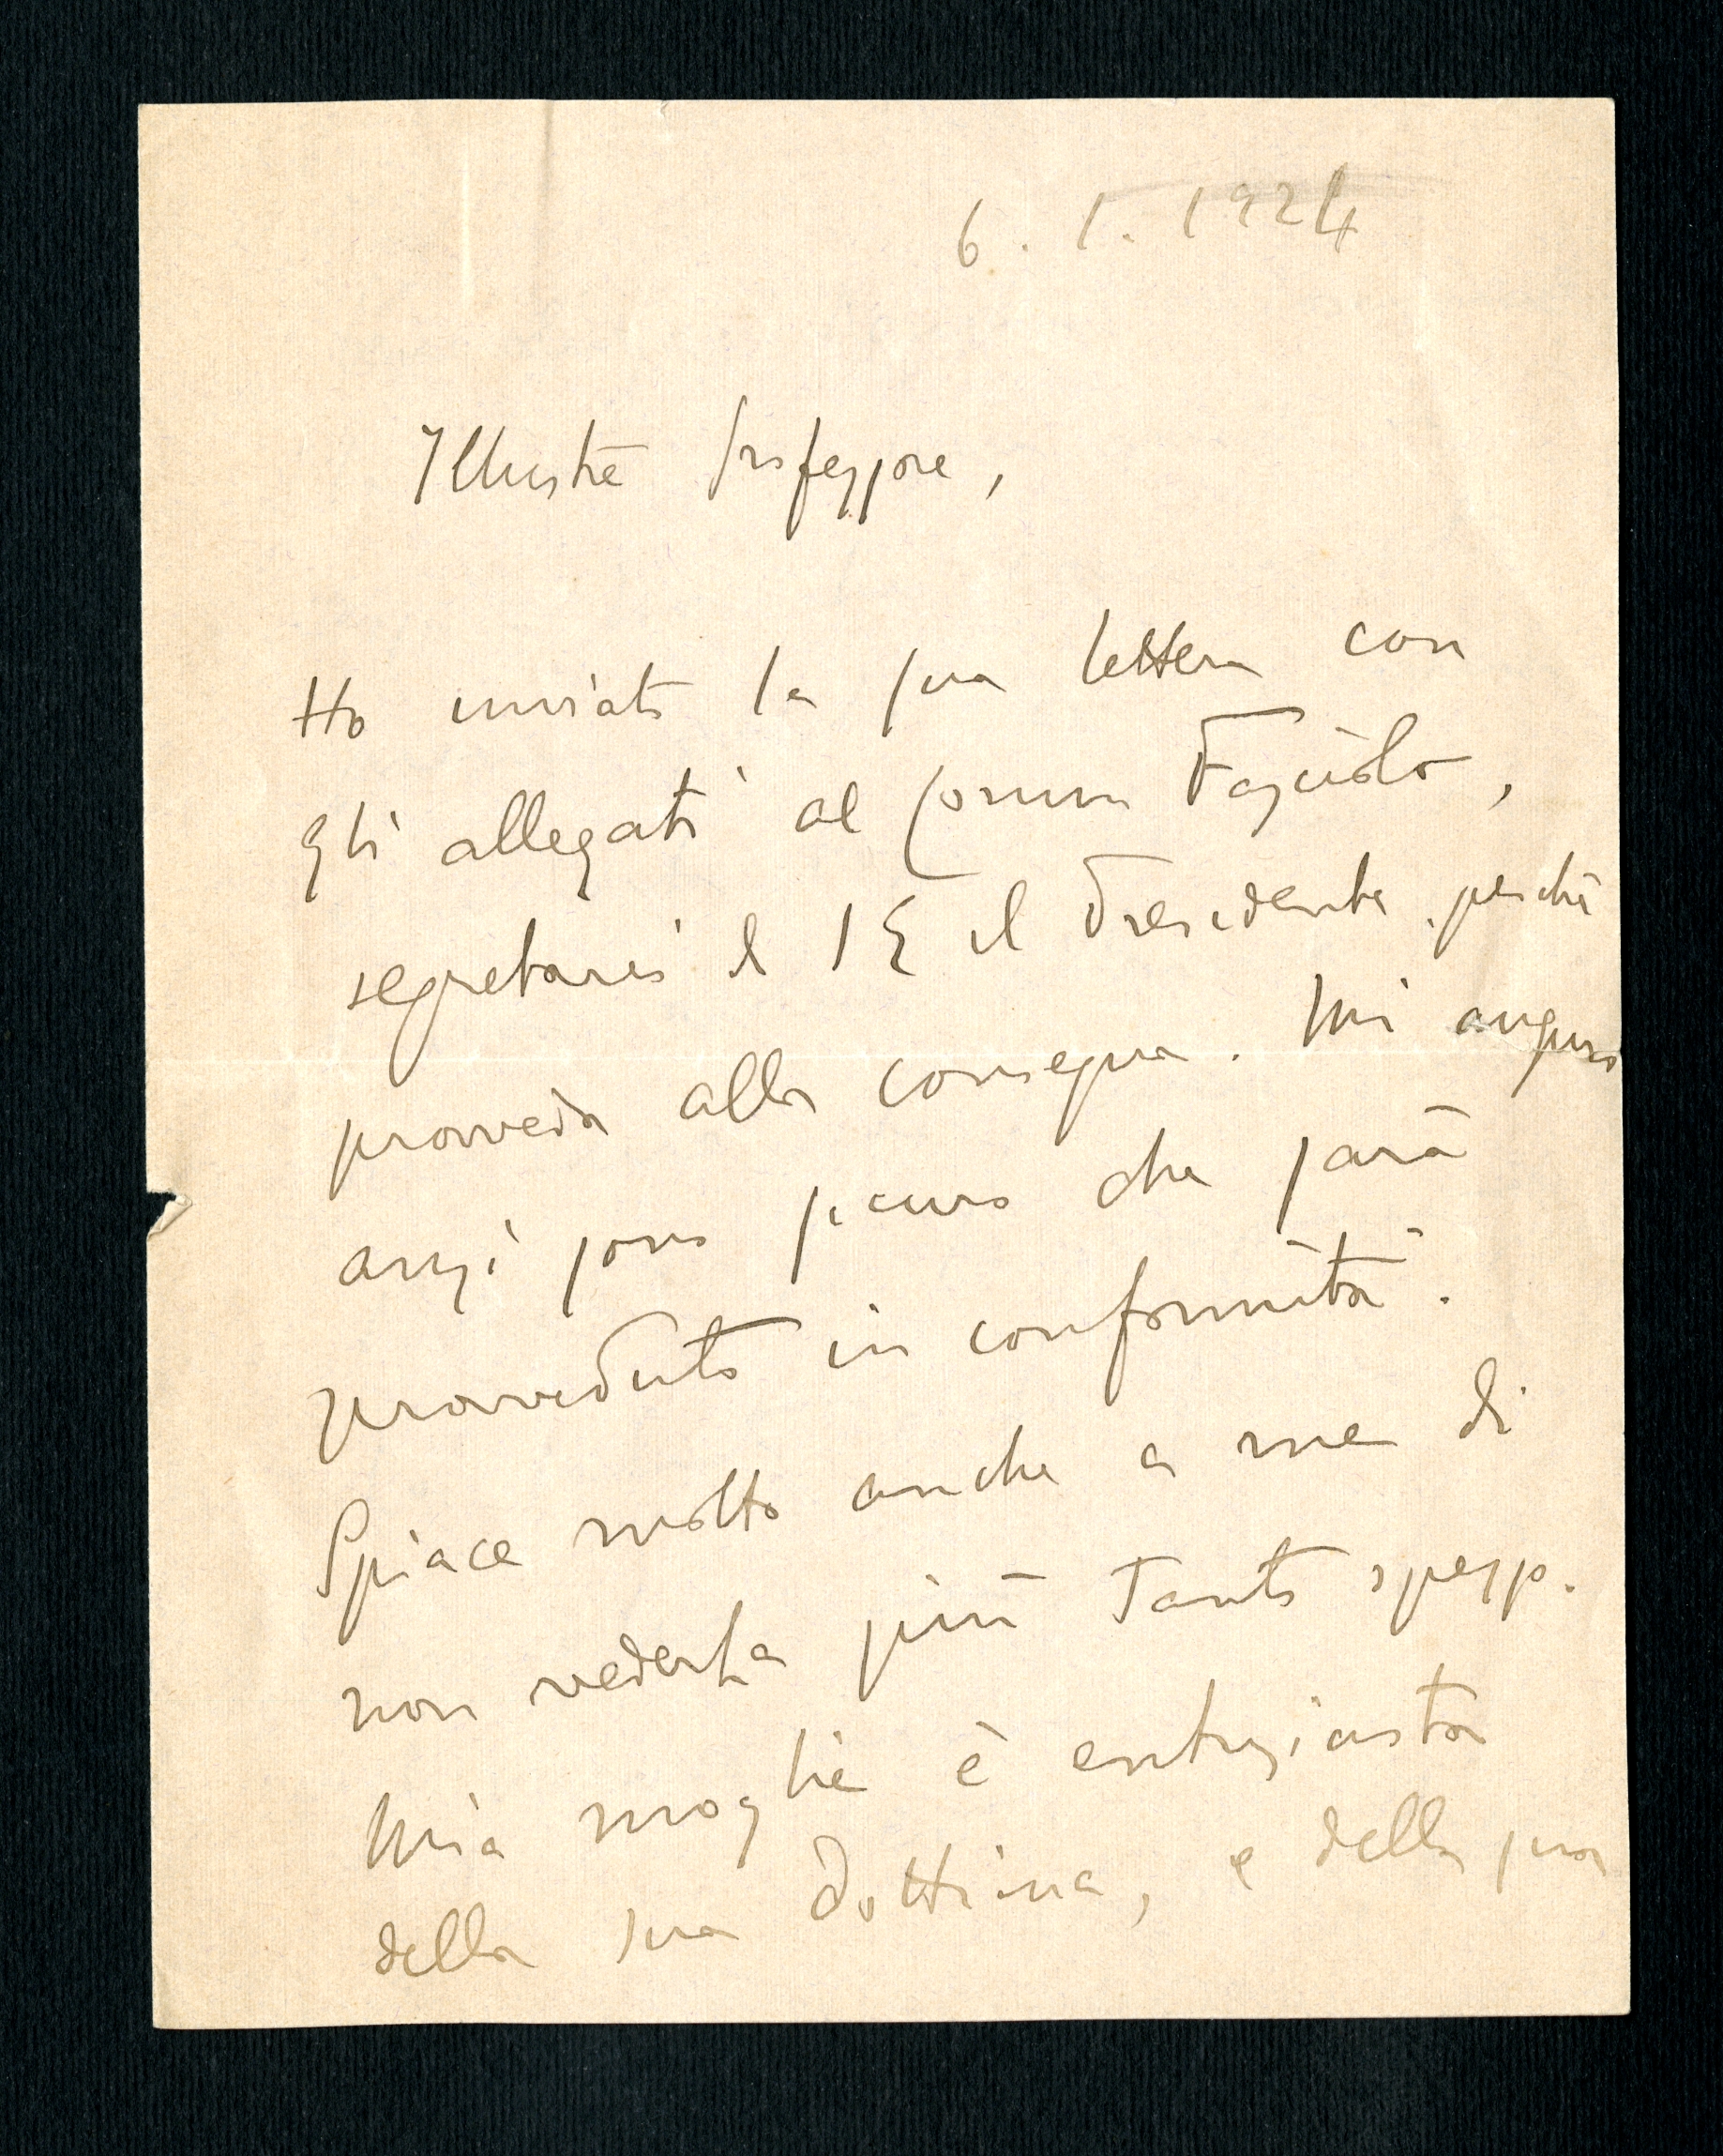 6. 1. 1924
Illustre Professore,
Ho inviato la sua lettera con
gli allegati al Comm Fasciolo,
segretario di S E il Presidente perché
provveda alla consegna. Mi auguro
anzi sono sicuro che sarà
provveduto in conformità.
Spiace molto anche a me di
non vederla più tanto spesso.
Mia moglie è entusiasta
della sua dottrina, e della sua